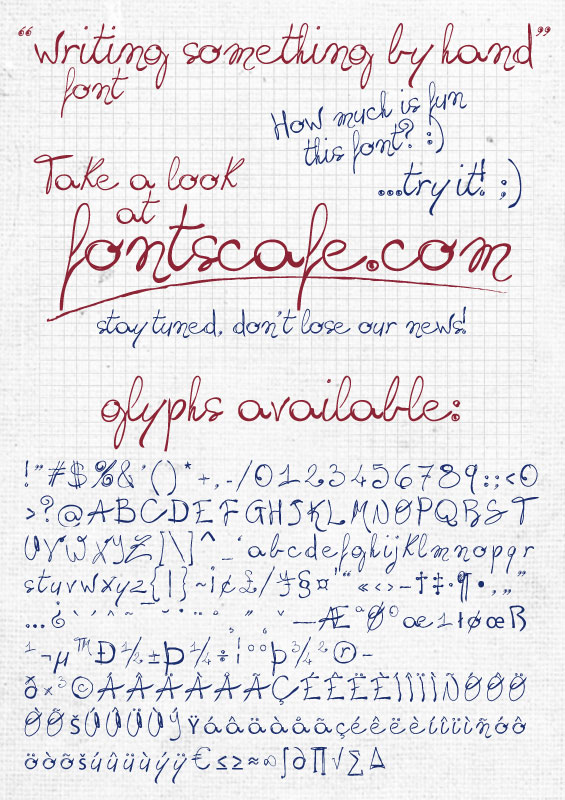 “writing something by hand”
font
How much is fun
this font? :)
...try it! ;)
Take a look
at
fontscafe.com
stay tuned, don't lose our news!
glyphs available:
!"#$%&'()*+,-/0123456789:;<O
>?@ABCDEFGHIJKLMNOPQRST
UVWXYZ[\]^_`abcdefghijklmnopqr
stuvwxyz{|}~¡¢£/¥§¤'“«‹›–†‡·¶•‚„”
…¿`´ˆ˜¯˘˙¨˚¸˝˛ˇ—ƪØºæıłøœß
¹¬µ™Ð½±Þ¼÷¦°þ¾²®−
ð×³©ÂÁÄÀÅÃÇÉÊËÈÍÎÏÌÑÓÔÖ
ÒÕšÚÛÜÙÝŸáâäàåãçéêëèíîïìñóô
öòõšúûüùýÿ€≤≥≈∞∫∂∏√∑∆